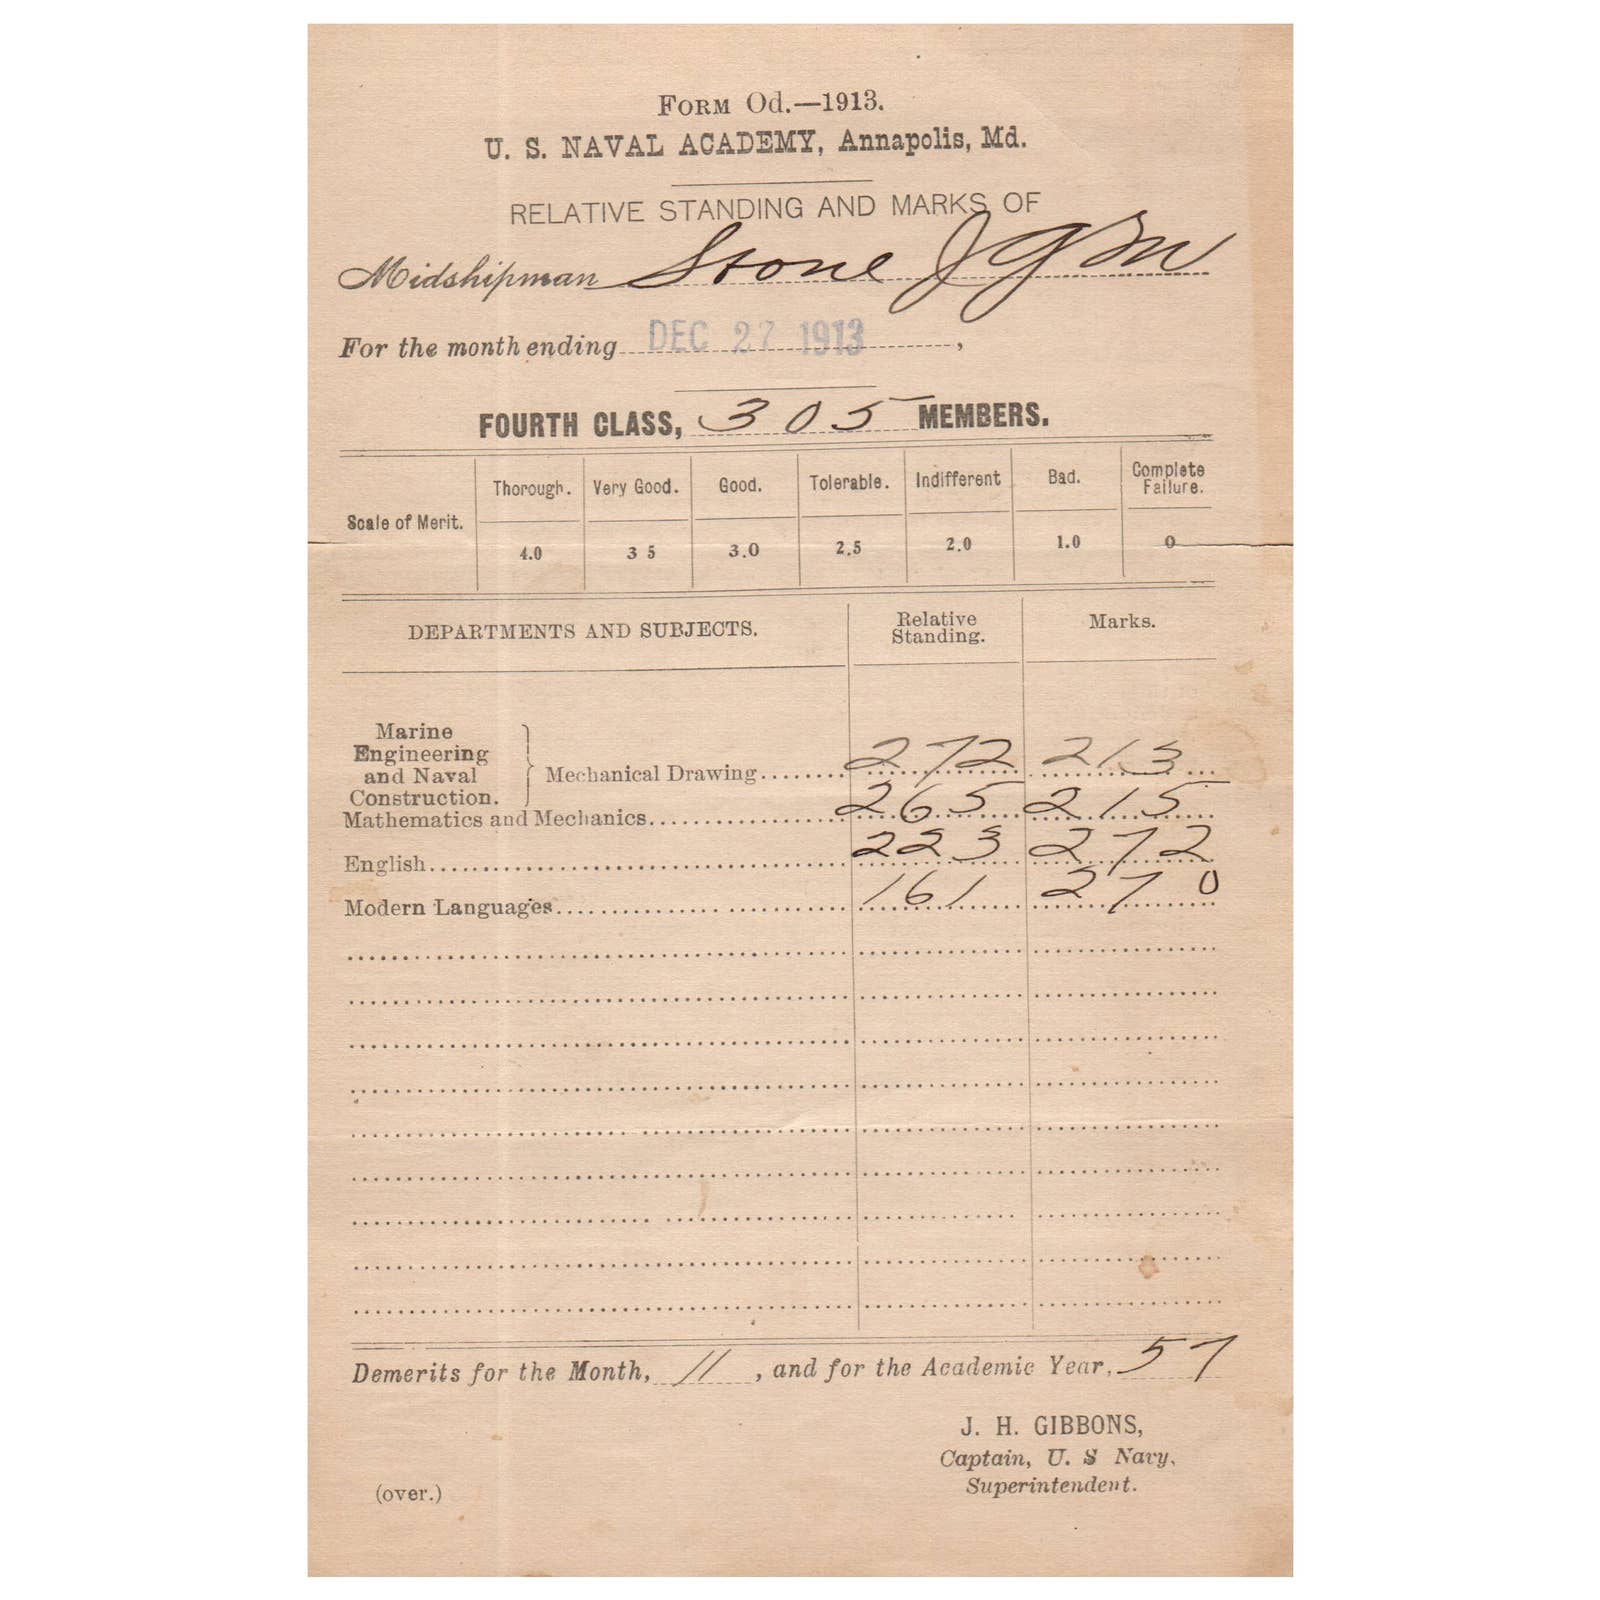 FORM Od.—1913.
U. S. NAVAL ACADEMY, Annapolis, Md.
RELATIVE STANDING AND MARKS OF
Midshipman Stone J G M
For the month ending DEC 27 1913,
FOURTH CLASS, 305 MEMBERS.
Scale of Merit. Thorough. Very Good. Good. Tolerable. Indifferent Bad. Complete Failure.
4.0 3 5 3.0 2.5 2.0 1.0 0
DEPARTMENTS AND SUBJECTS. Relative Standing. Marks.
Marine Engineering and Naval Construction. } Mechanical Drawing........ 272 213
Mathematics and Mechanics.................. 265 215
English.................. 223 272
Modern Languages.................. 161 270
Demerits for the Month, 11, and for the Academic Year, 57
J. H. GIBBONS,
Captain, U. S Navy,
Superintendent.
(over.)